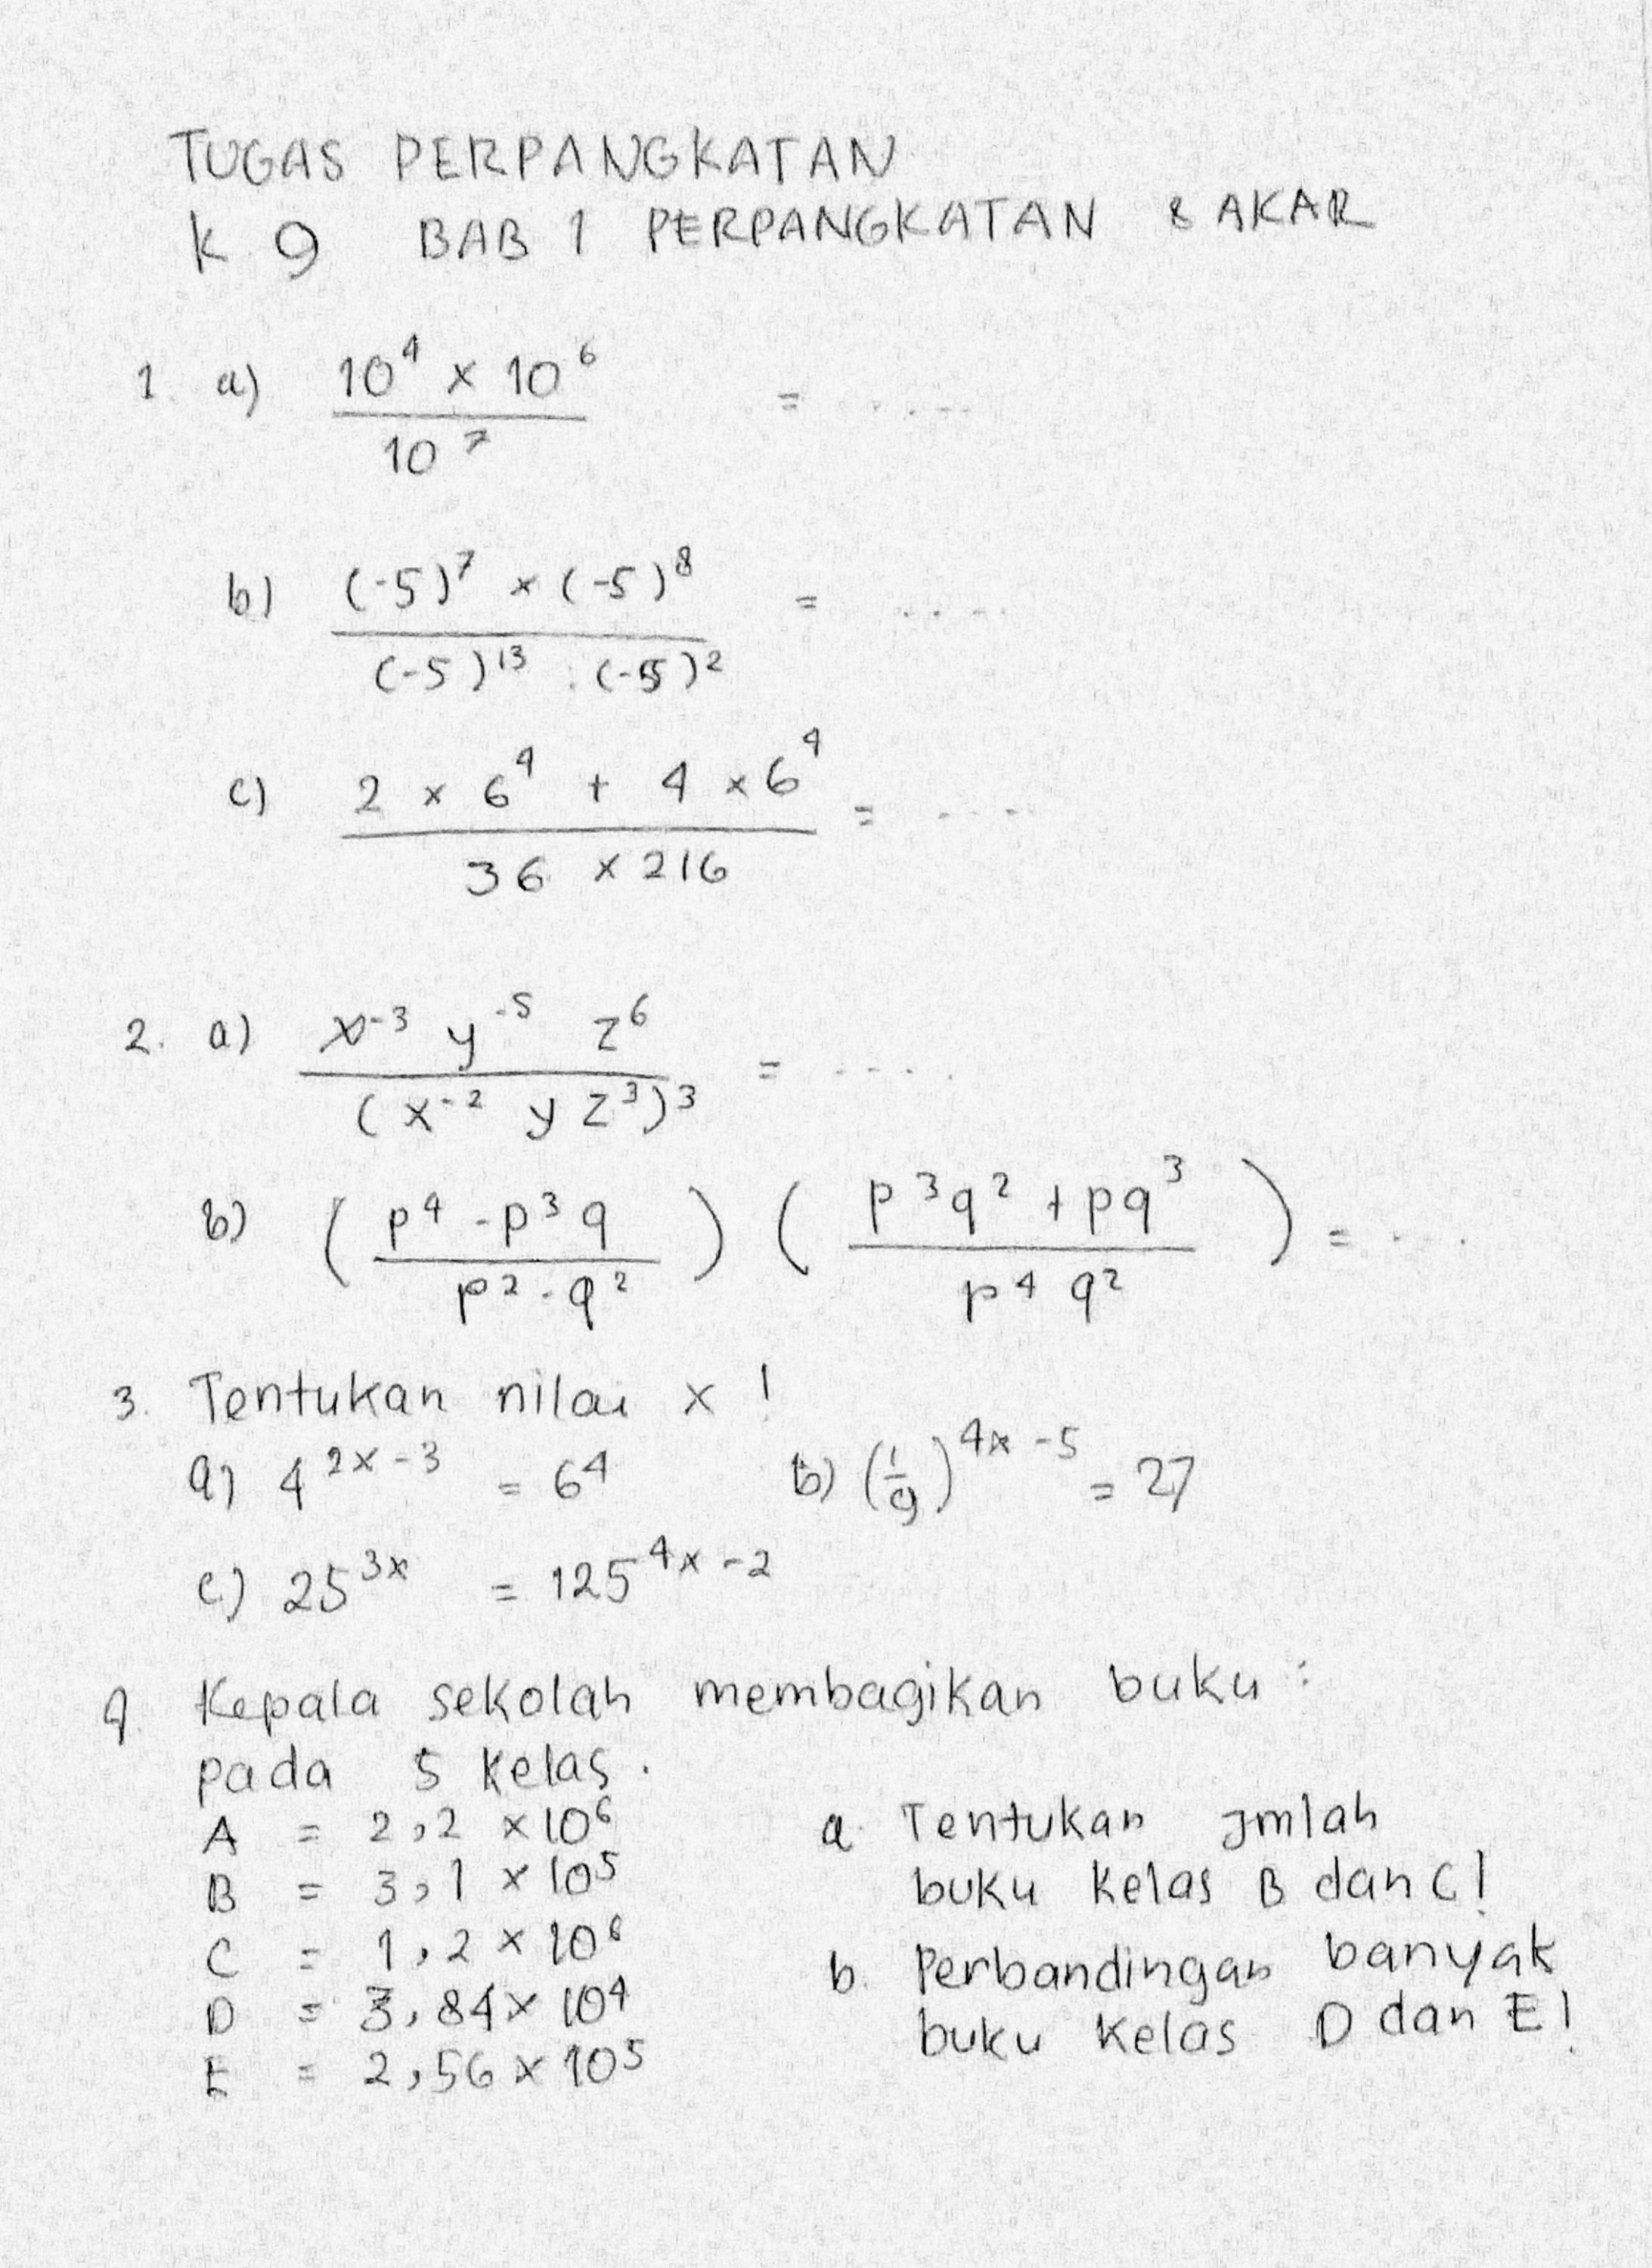 TUGAS PERPANGKATAN
K 9 BAB 1 PERPANGKATAN & AKAR
1. a) (10⁴ × 10⁶) / 10⁷ = .....
b) ((-5)⁷ × (-5)⁸) / ((-5)¹³ : (-5)²) = ....
c) (2 × 6⁴ + 4 × 6⁴) / (36 × 216) = ....
2. a) (x⁻³ y⁻⁵ z⁶) / (x⁻² y z³)³ = .....
b) ((p⁴ - p³q) / (p² - q²)) ((p³q² + pq³) / (p⁴q²)) = ....
3. Tentukan nilai x !
a) 4²ˣ⁻³ = 64 b) (1/9)⁴ˣ⁻⁵ = 27
c) 25³ˣ = 125⁴ˣ⁻²
4. Kepala sekolah membagikan buku :
pada 5 kelas .
A = 2,2 × 10⁶
B = 3,1 × 10⁵
C = 1,2 × 10⁶
D = 3,84 × 10⁴
E = 2,56 × 10⁵
a. Tentukan jmlah
buku kelas B dan C !
b. Perbandingan banyak
buku kelas D dan E !